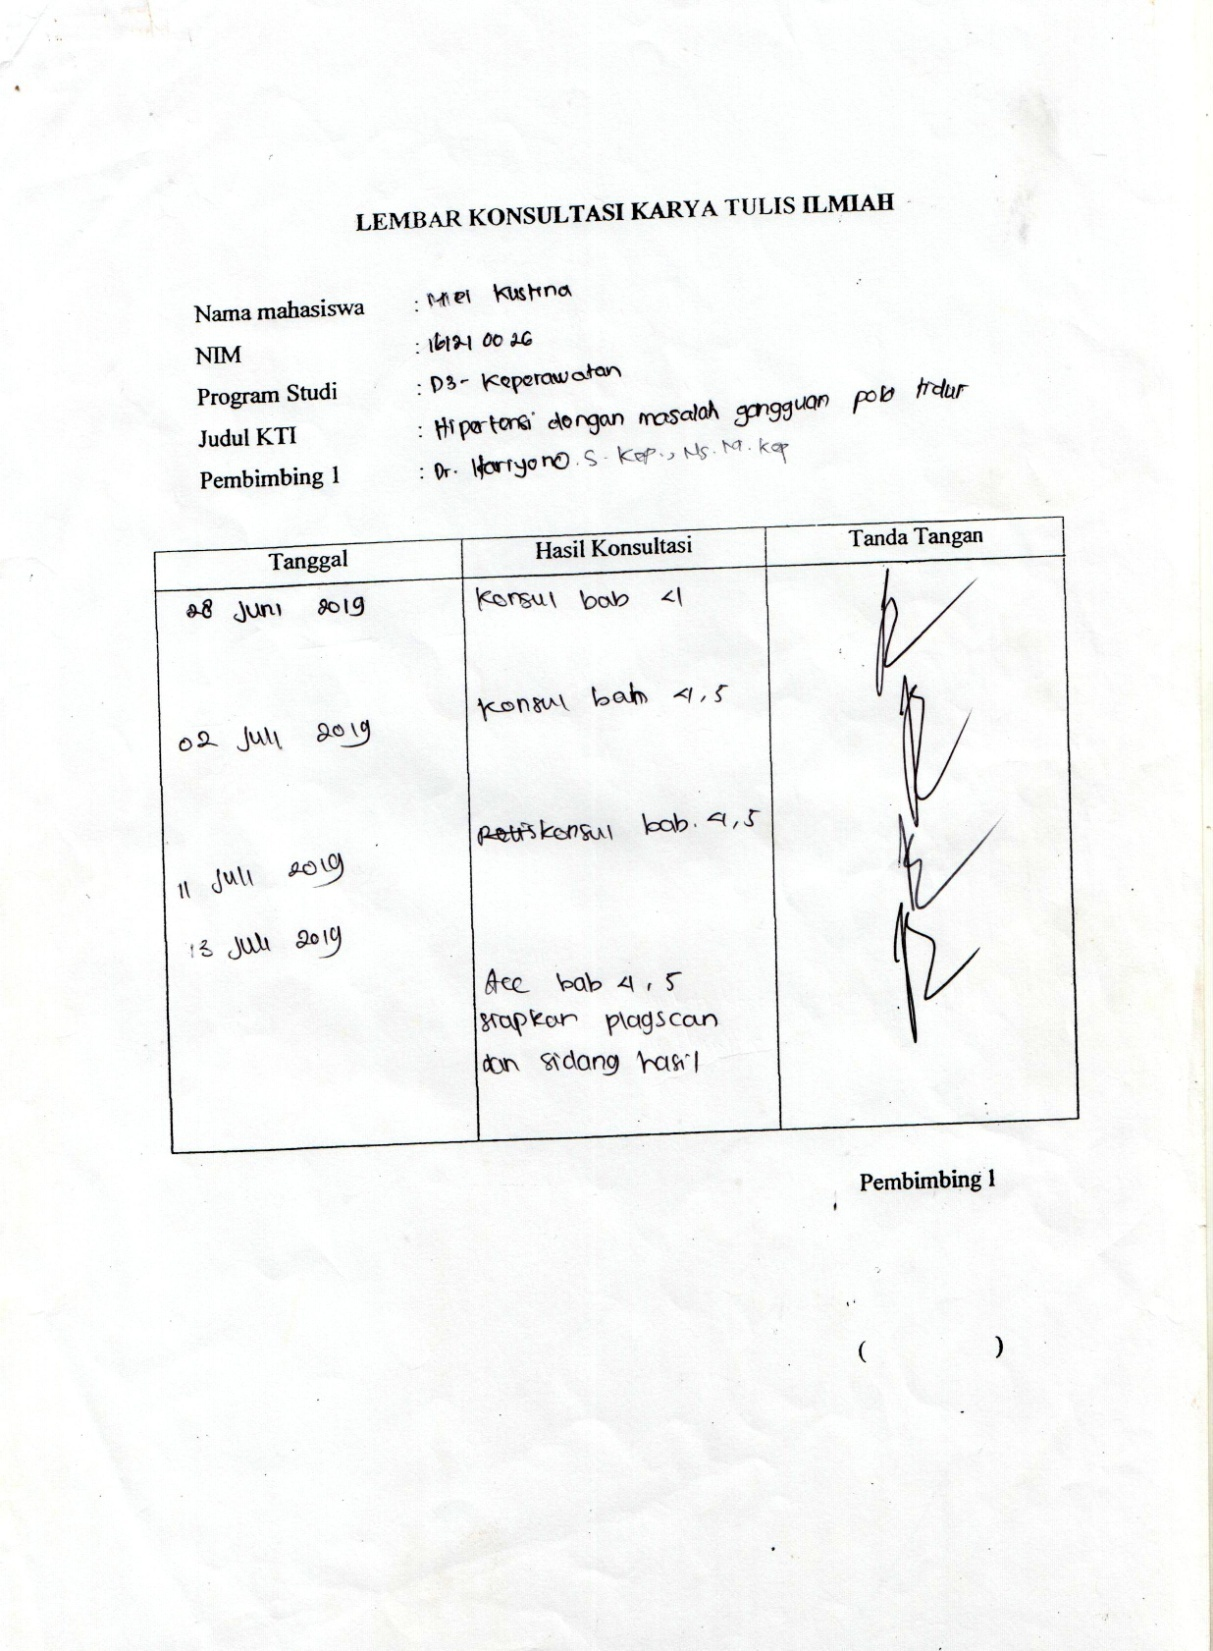 LEMBAR KONSULTASI KARYA TULIS ILMIAH
Nama mahasiswa : Mei Kustina
NIM : 16121 00 26
Program Studi : D3- Keperawatan
Judul KTI : Hipertensi dengan masalah gangguan pola tidur
Pembimbing 1 : Dr. Hariyono. S. Kep., Ns. M. Kep
Tanggal Hasil Konsultasi Tanda Tangan
28 Juni 2019 Konsul bab 4
02 Juli 2019 Konsul bab 4,5
11 Juli 2019 konsul bab. 4,5
13 Juli 2019 Acc bab 4,5
siapkan plagscan
dan sidang hasil
Pembimbing 1
( )